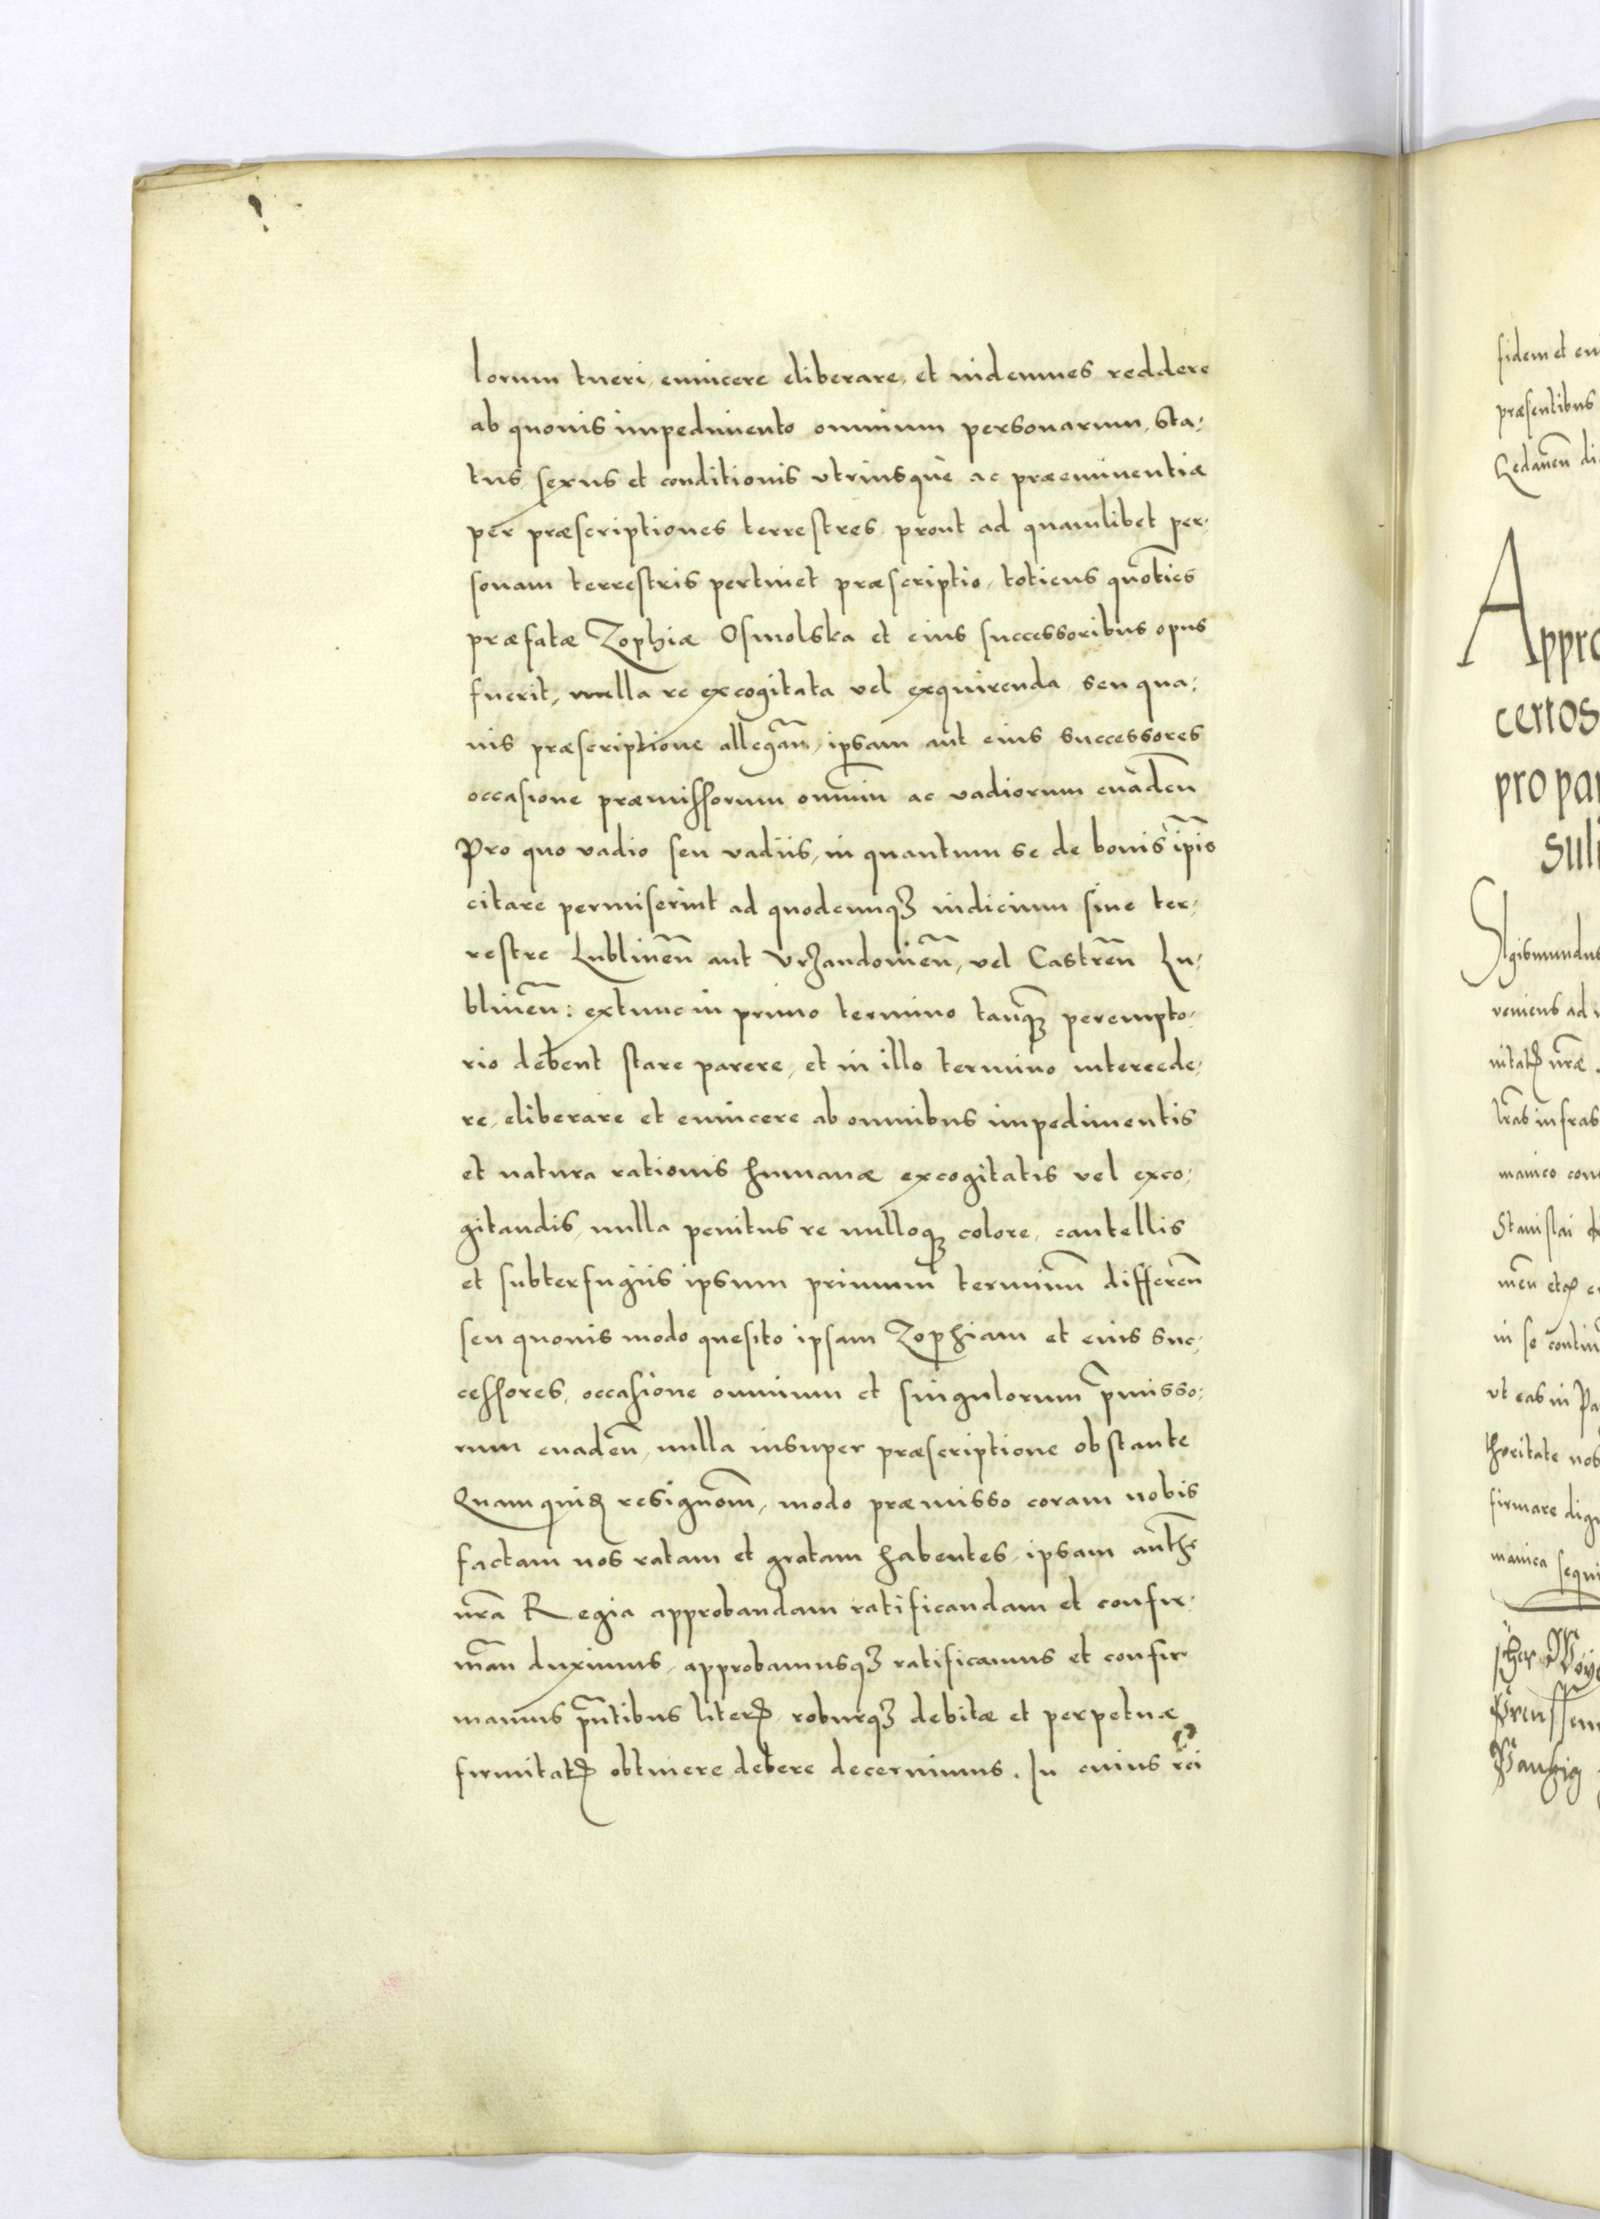 lorum tueri, euincere eliberare, et indemnes reddere
ab quouis impedimento omnium personarum, sta:
tus, sexus et conditionis vtriusque ac præeminentiæ
per præscriptiones terrestres prout ad quamlibet per:
sonam terrestris pertinet præscriptio, totiens quoties
præfatæ Zophiæ Osmolska et eius successoribus opus
fuerit, nulla re excogitata vel exquirenda, seu qua:
uis præscriptione allegañ, ipsam aut eius successores
occasione præmissorum omniũ ac vadiorum euadeñ
Pro quo vadio seu vadiis, in quantum se de bonis ip̃is
citare permiserint ad quodcunqꝫ iudicium siue ter:
restre Lublineñ aut Vrzandouieñ, vel Castreñ Lu:
blineñ: extunc in primo termino tanqꝫ perempto:
rio debent stare parere, et in illo termino intercede:
re, eliberare et euincere ab omnibus impedimentis
et natura rationis humanæ excogitatis vel exco:
gitandis, nulla penitus re nulloqꝫ colore, cautellis
et subterfugiis ipsum primum terminũ differeñ
seu quouis modo quesito ipsam Zophiam et eius suc:
cessores, occasione omnium et singulorum p̃misso:
rum euadeñ, nulla insuper præscriptione obstante
Quam quidẽ resignoẽm, modo præmisso coram nobis
factam nos ratam et gratam habentes, ipsam auth̃e
nr̃a Regia approbandam ratificandam et confir:
mañ duximus, approbamusqꝫ ratificamus et confir
mamus p̃ntibus literꝭ, roburqꝫ debitæ et perpetuæ
firmitatꝭ obtinere debere decernimus. In cuius rei
fidem et
præsentibus
Gedaneñ
Appro
certos
pro pa
Sigismundus
veniens ad
nitatꝭ nr̃æ
lr̃as infras
manico
Stanislai
in se
vt eas in
thoritate nos
firmare
manica sequi